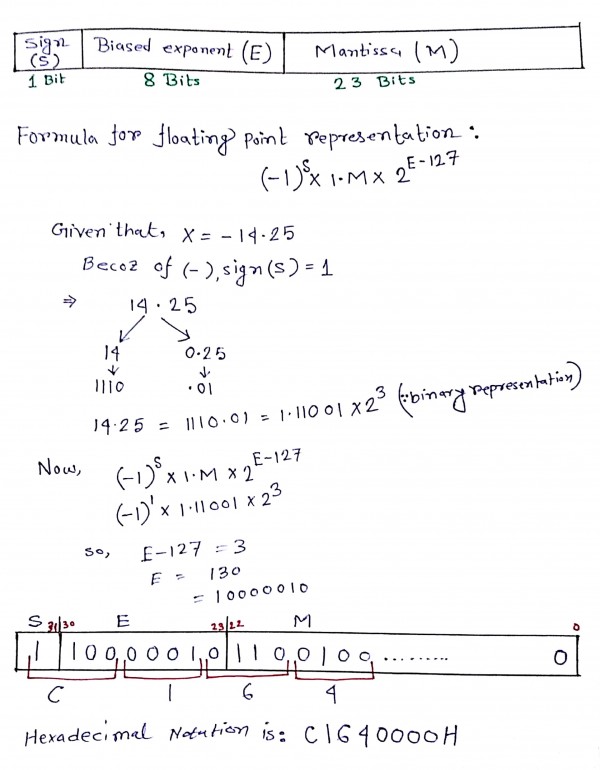 Sign (S) Biased exponent (E) Mantissa (M)
1 Bit 8 Bits 23 Bits
Formula for floating point representation :
(-1)^S x 1.M x 2^E-127
Given that, X = - 14.25
Becoz of (-), sign(s) = 1
⇒ 14.25
14 0.25
1110 .01
14.25 = 1110.01 = 1.11001 x 2^3 (∵binary representation)
Now, (-1)^S x 1.M x 2^E-127
(-1)^1 x 1.11001 x 2^3
so, E-127 = 3
E = 130
= 10000010
S 31|30 E 23|22 M 0
1 1 0 0 0 0 0 1 0 1 1 0 0 1 0 0 ......... 0
C 1 6 4
Hexadecimal Notation is: C1640000H